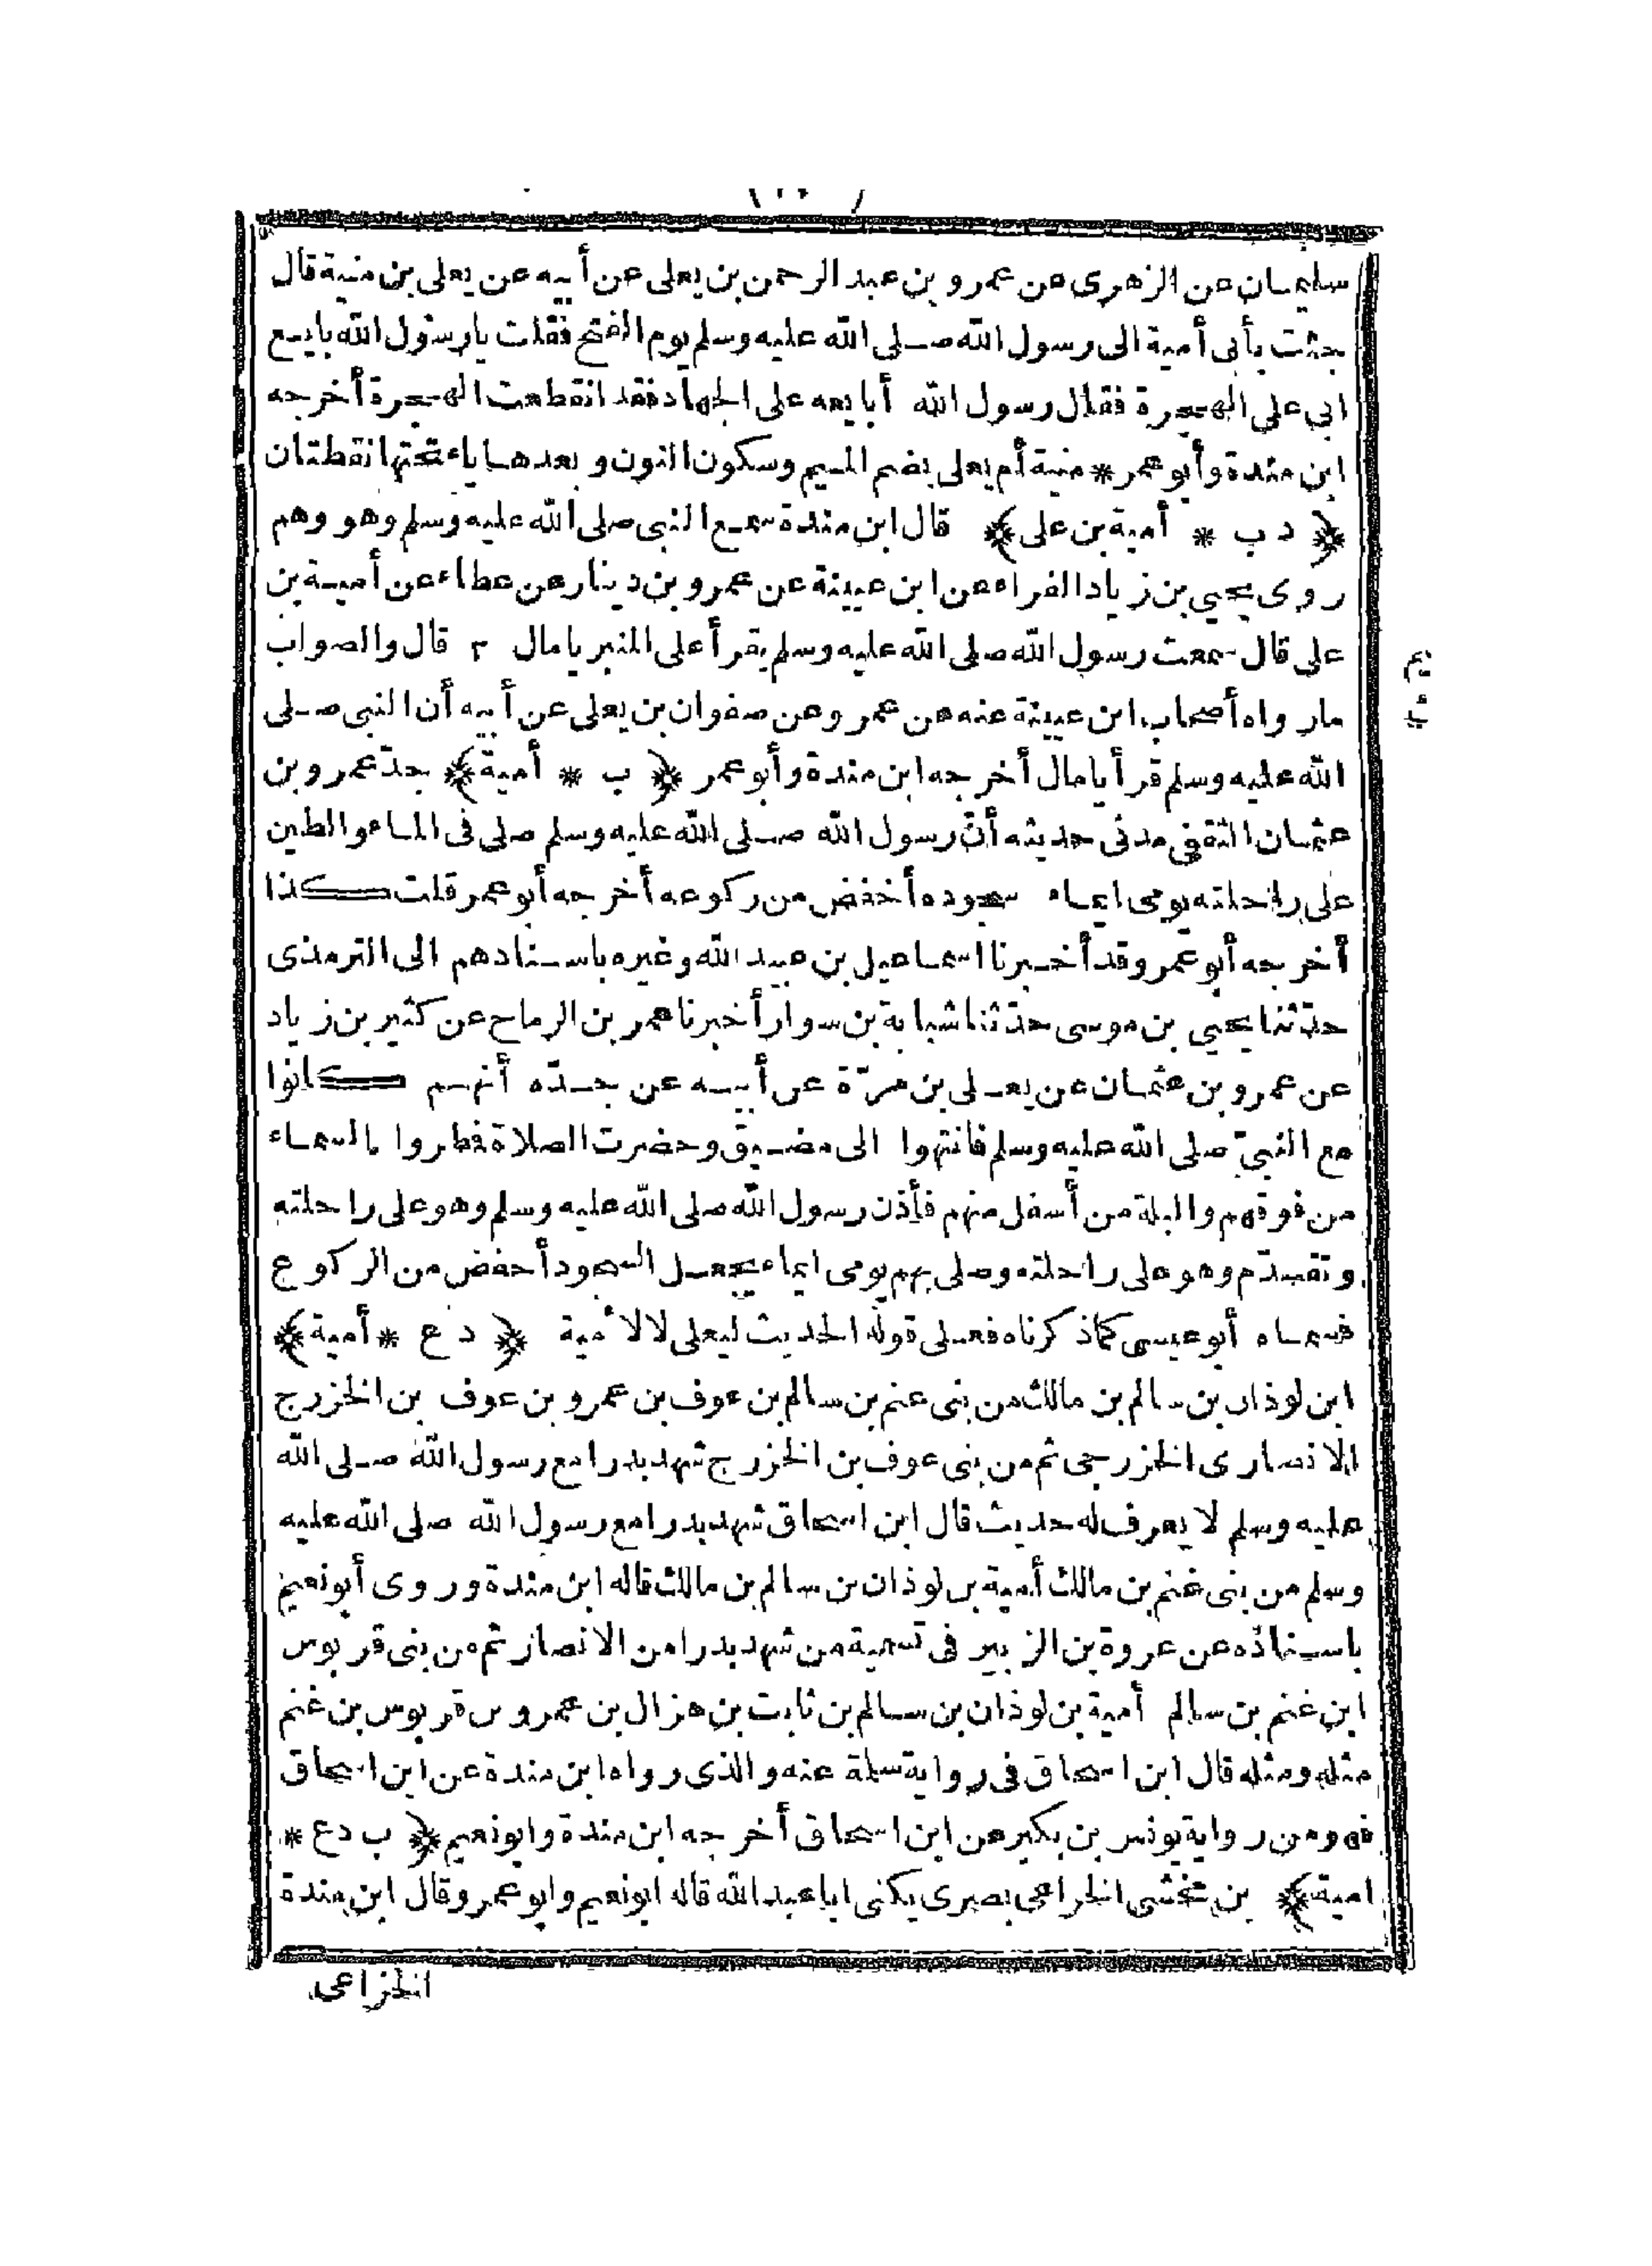 سليمان عن الزهرى عن عمرو بن عبد الرحمن بن يعلى عن أبيه عن يعلى بن منية قال
جئت بأبى أمية الى رسول الله صلى الله عليه وسلم يوم الفتح فقلت يا رسول الله بايع
ابى على الهجرة فقال رسول الله أبايعه على الجهاد فقد انقطعت الهجرة أخرجه
ابن مندة وأبو عمر * منية أم يعلى بضم الميم وسكون النون وبعدها ياء تحتها نقطتان
﴿ د ب * أمية بن على﴾ قال ابن مندة سمع النبى صلى الله عليه وسلم وهو وهم
روى يحيى بن زياد الفراء عن ابن عيينة عن عمرو بن دينار عن عطاء عن أمية بن
على قال سمعت رسول الله صلى الله عليه وسلم يقرأ على المنبر يا مال ٣ قال والصواب
ما رواه أصحاب ابن عيينة عنه عن عمرو عن صفوان بن يعلى عن أبيه أن النبى صلى
الله عليه وسلم قرأ يا مال أخرجه ابن مندة وأبو عمر ﴿ ب * أمية﴾ جدّ عمرو بن
عثمان الثقفى مدنى حديثه أنّ رسول الله صلى الله عليه وسلم صلى فى الماء والطين
على راحلته يومى ايماء سجوده أخفض من ركوعه أخرجه أبو عمر قلت كذا
أخرجه أبو عمر وقد أخبرنا اسماعيل بن عبيد الله وغيره باسنادهم الى الترمذى
حدّثنا يحيى بن موسى حدّثنا شبابة بن سوار أخبرنا عمر بن الرماح عن كثير بن زياد
عن عمرو بن عثمان عن يعلى بن مرّة عن أبيه عن جدّه أنهم كانوا
مع النبىّ صلى الله عليه وسلم فانتهوا الى مضيق وحضرت الصلاة فطروا بالسماء
من فوقهم والبلة من أسفل منهم فأذن رسول الله صلى الله عليه وسلم وهو على راحلته
وتقدّم وهو على راحلته وصلى بهم يومى ايماء يجعل السجود أخفض من الركوع
فسماه أبو عيسى كما ذكرناه فعلى قوله الحديث ليعلى لا لأمية ﴿ د ع * أمية﴾
ابن لوذان بن سالم بن مالك من بنى غنم بن سالم بن عوف بن عمرو بن عوف بن الخزرج
الانصارى الخزرجى ثم من بنى عوف بن الخزرج شهد بدرا مع رسول الله صلى الله
عليه وسلم لا يعرف له حديث قال ابن اسحاق شهد بدرا مع رسول الله صلى الله عليه
وسلم من بنى غنم بن مالك أمية بن لوذان بن سالم بن مالك قاله ابن مندة وروى أبو نعيم
باسناده عن عروة بن الزبير فى تسمية من شهد بدرا من الانصار ثم من بنى قربوس
ابن غنم بن سالم أمية بن لوذان بن سالم بن ثابت بن هزال بن عمرو بن قربوس بن غنم
مثله ومثله قال ابن اسحاق فى رواية سلمة عنه والذى رواه ابن مندة عن ابن اسحاق
فهو من رواية يونس بن بكير عن ابن اسحاق أخرجه ابن مندة وابو نعيم ﴿ ب د ع *
امية﴾ بن مخشى الخزاعى بصرى يكنى ابا عبد الله قاله ابو نعيم وابو عمر وقال ابن مندة
الخزاعى